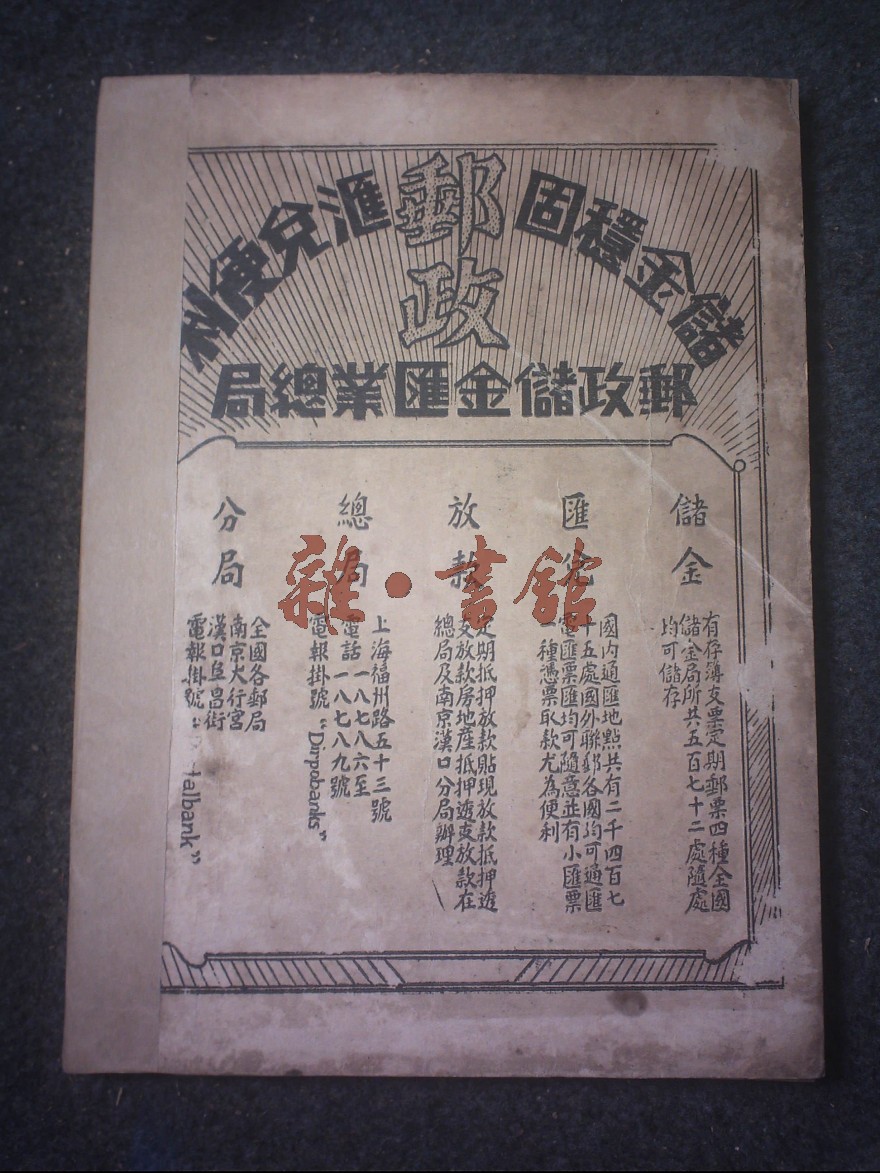 儲金穩固
郵政
滙兌便利
郵政儲金匯業總局
儲金
有存簿支票定期郵票四種全國
儲金局所共五百七十二處隨處
均可儲存
匯兌
國內通匯地點共有二千四百七
十五處國外聯郵各國均可通匯
電匯票匯均可隨意並有小匯票
一種憑票取款尤為便利
放款
定期抵押放款貼現放款抵押透
支放款房地產抵押透支放款在
總局及南京漢口分局辦理
總局
上海福州路五十三號
電話一八七八六至
一八七八九號
電報掛號 "Dirpobanks"
分局
全國各郵局
南京大行宮
漢口阜昌街
電報掛號
albank"
雜·書館